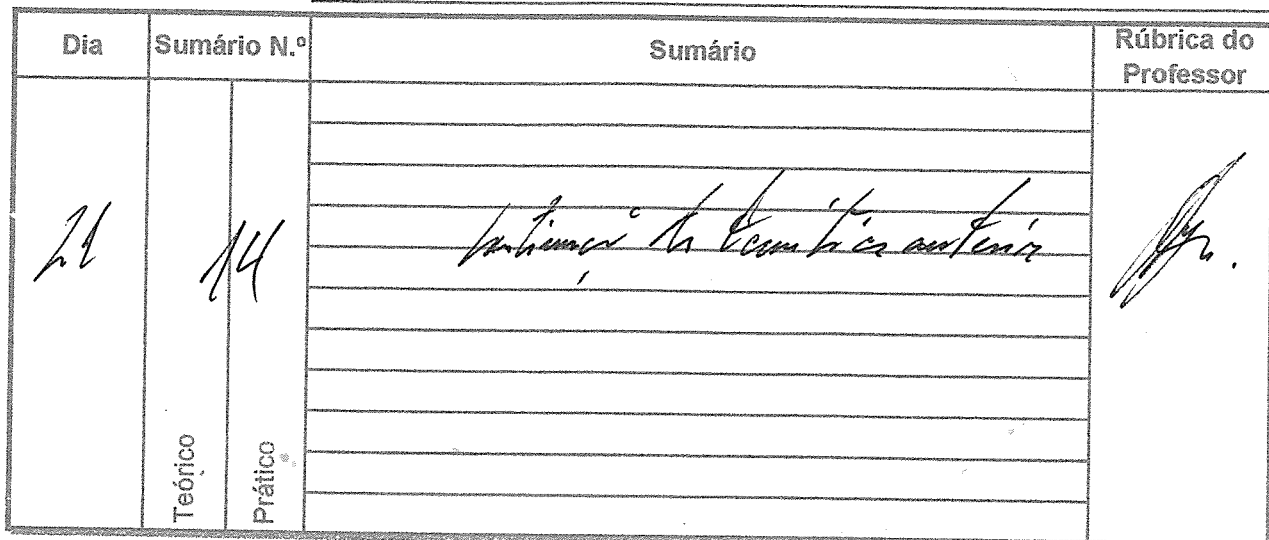 Dia
Sumário N.º
Sumário
Rúbrica do
Professor
21
14
da temática anterior
Teórico
Prático